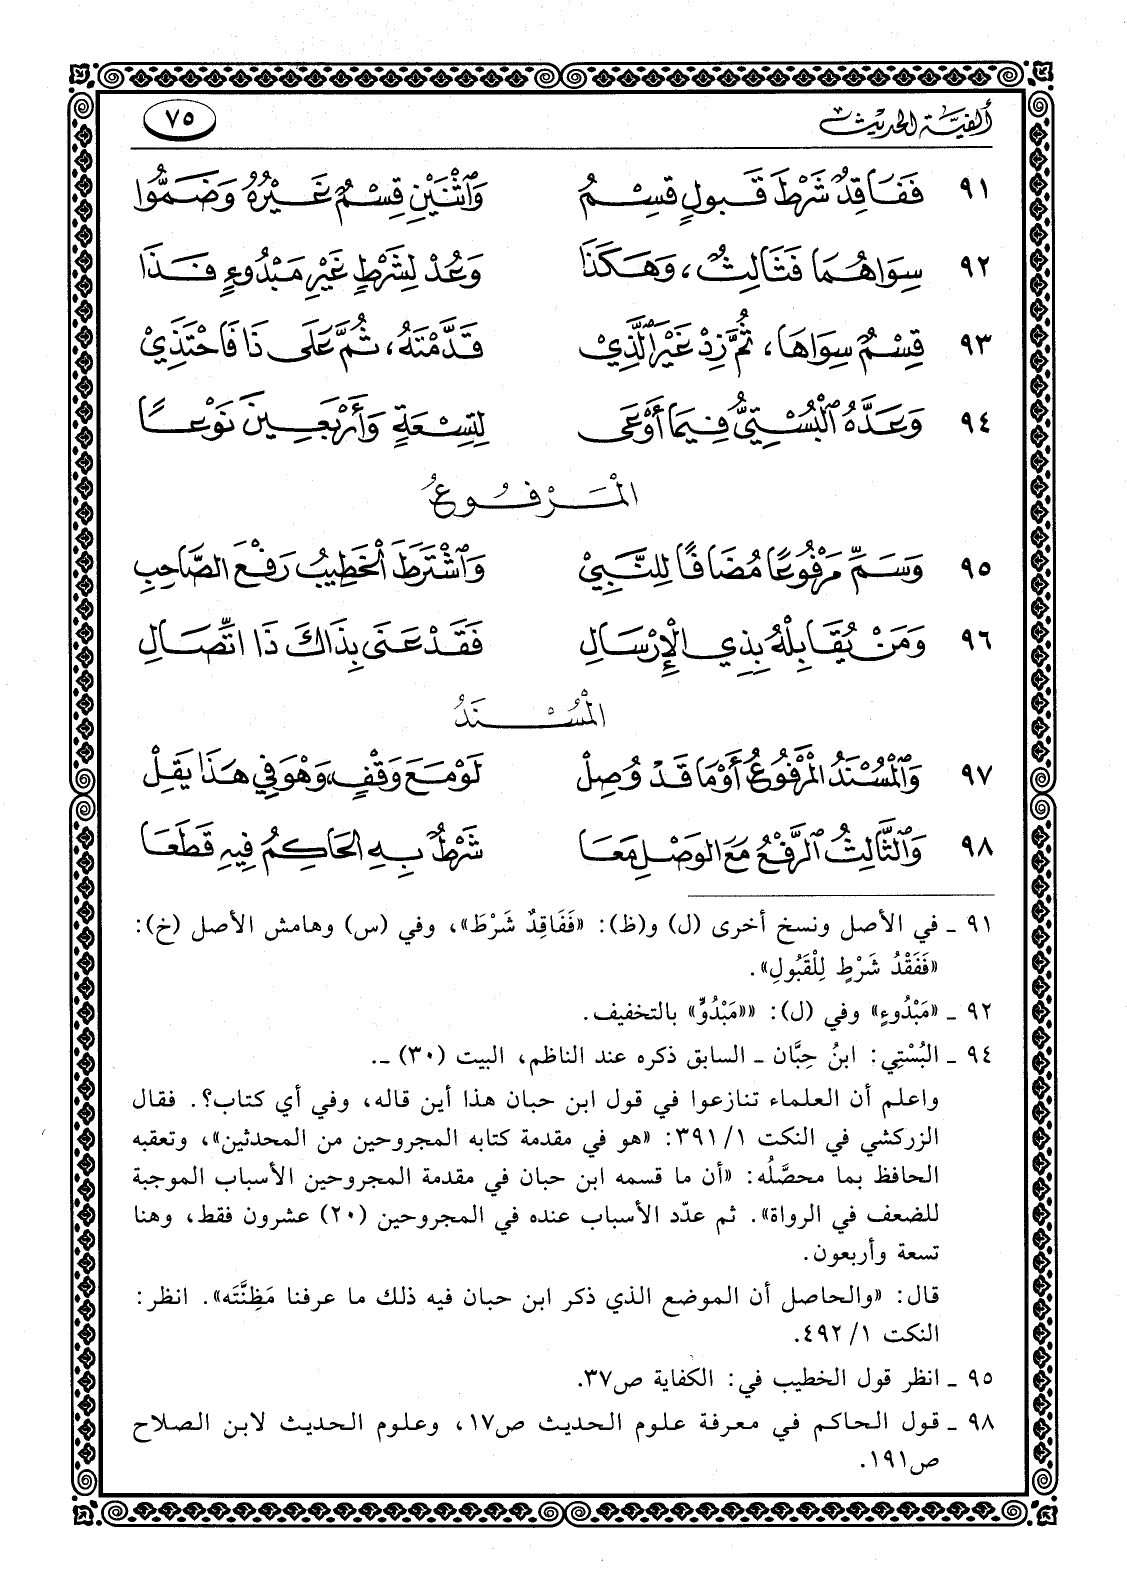 ألفية الحديث ٧٥
٩١ فَفَاقِدٌ شَرْطَ قَبُولٍ قِسْمُ وَاثْنَيْنِ قِسْمٌ غَيْرُهُ وَضَمُّوا
٩٢ سِوَاهُمَا فَثَالِثٌ، وَهَكَذَا وَعُدْ لِشَرْطٍ غَيْرِ مَبْدُوءٍ فَذَا
٩٣ قِسْمٌ سِوَاهَا، ثُمَّ زِدْ غَيْرَ الَّذِيْ قَدَّمْتَهُ، ثُمَّ عَلَى ذَا فَاحْتَذِيْ
٩٤ وَعَدَّهُ الْبُسْتِيُّ فِيمَا أَوْعَى لِتِسْعَةٍ وَأَرْبَعِينَ نَوْعًا
الْمَرْفُوعُ
٩٥ وَسَمِّ مَرْفُوعًا مُضَافًا لِلنَّبِيْ وَاشْتَرَطَ الْخَطِيبُ رَفْعَ الصَّاحِبِ
٩٦ وَمَنْ يُقَابِلْهُ بِذِي الْإِرْسَالِ فَقَدْ عَنَى بِذَاكَ ذَا اتِّصَالِ
الْمُسْنَدُ
٩٧ وَالْمُسْنَدُ الْمَرْفُوعُ أَوْ مَا قَدْ وُصِلْ لَوْ مَعَ وَقْفٍ، وَهُوَ فِي هَذَا يَقِلْ
٩٨ وَالثَّالِثُ الرَّفْعُ مَعَ الْوَصْلِ مَعَا شَرْطٌ بِهِ الْحَاكِمُ فِيهِ قَطَعَا
٩١ ـ في الأصل ونسخ أخرى (ل) و(ظ): «فَفَاقِدٌ شَرْطَ»، وفي (س) وهامش الأصل (خ):
«فَفَقْدُ شَرْطٍ لِلْقَبُولِ».
٩٢ ـ «مَبْدُوءٍ» وفي (ل): ««مَبْدُوٍّ» بالتخفيف.
٩٤ ـ البُسْتِي: ابنُ حِبَّان ـ السابق ذكره عند الناظم، البيت (٣٠) ـ.
واعلم أن العلماء تنازعوا في قول ابن حبان هذا أين قاله، وفي أي كتاب؟. فقال
الزركشي في النكت ٣٩١/١: «هو في مقدمة كتابه المجروحين من المحدثين»، وتعقبه
الحافظ بما محصَّلُه: «أن ما قسمه ابن حبان في مقدمة المجروحين الأسباب الموجبة
للضعف في الرواة». ثم عدّد الأسباب عنده في المجروحين (٢٠) عشرون فقط، وهنا
تسعة وأربعون.
قال: «والحاصل أن الموضع الذي ذكر ابن حبان فيه ذلك ما عرفنا مَظِنَّتَه». انظر:
النكت ٤٩٢/١.
٩٥ ـ انظر قول الخطيب في: الكفاية ص٣٧.
٩٨ ـ قول الحاكم في معرفة علوم الحديث ص١٧، وعلوم الحديث لابن الصلاح
ص١٩١.